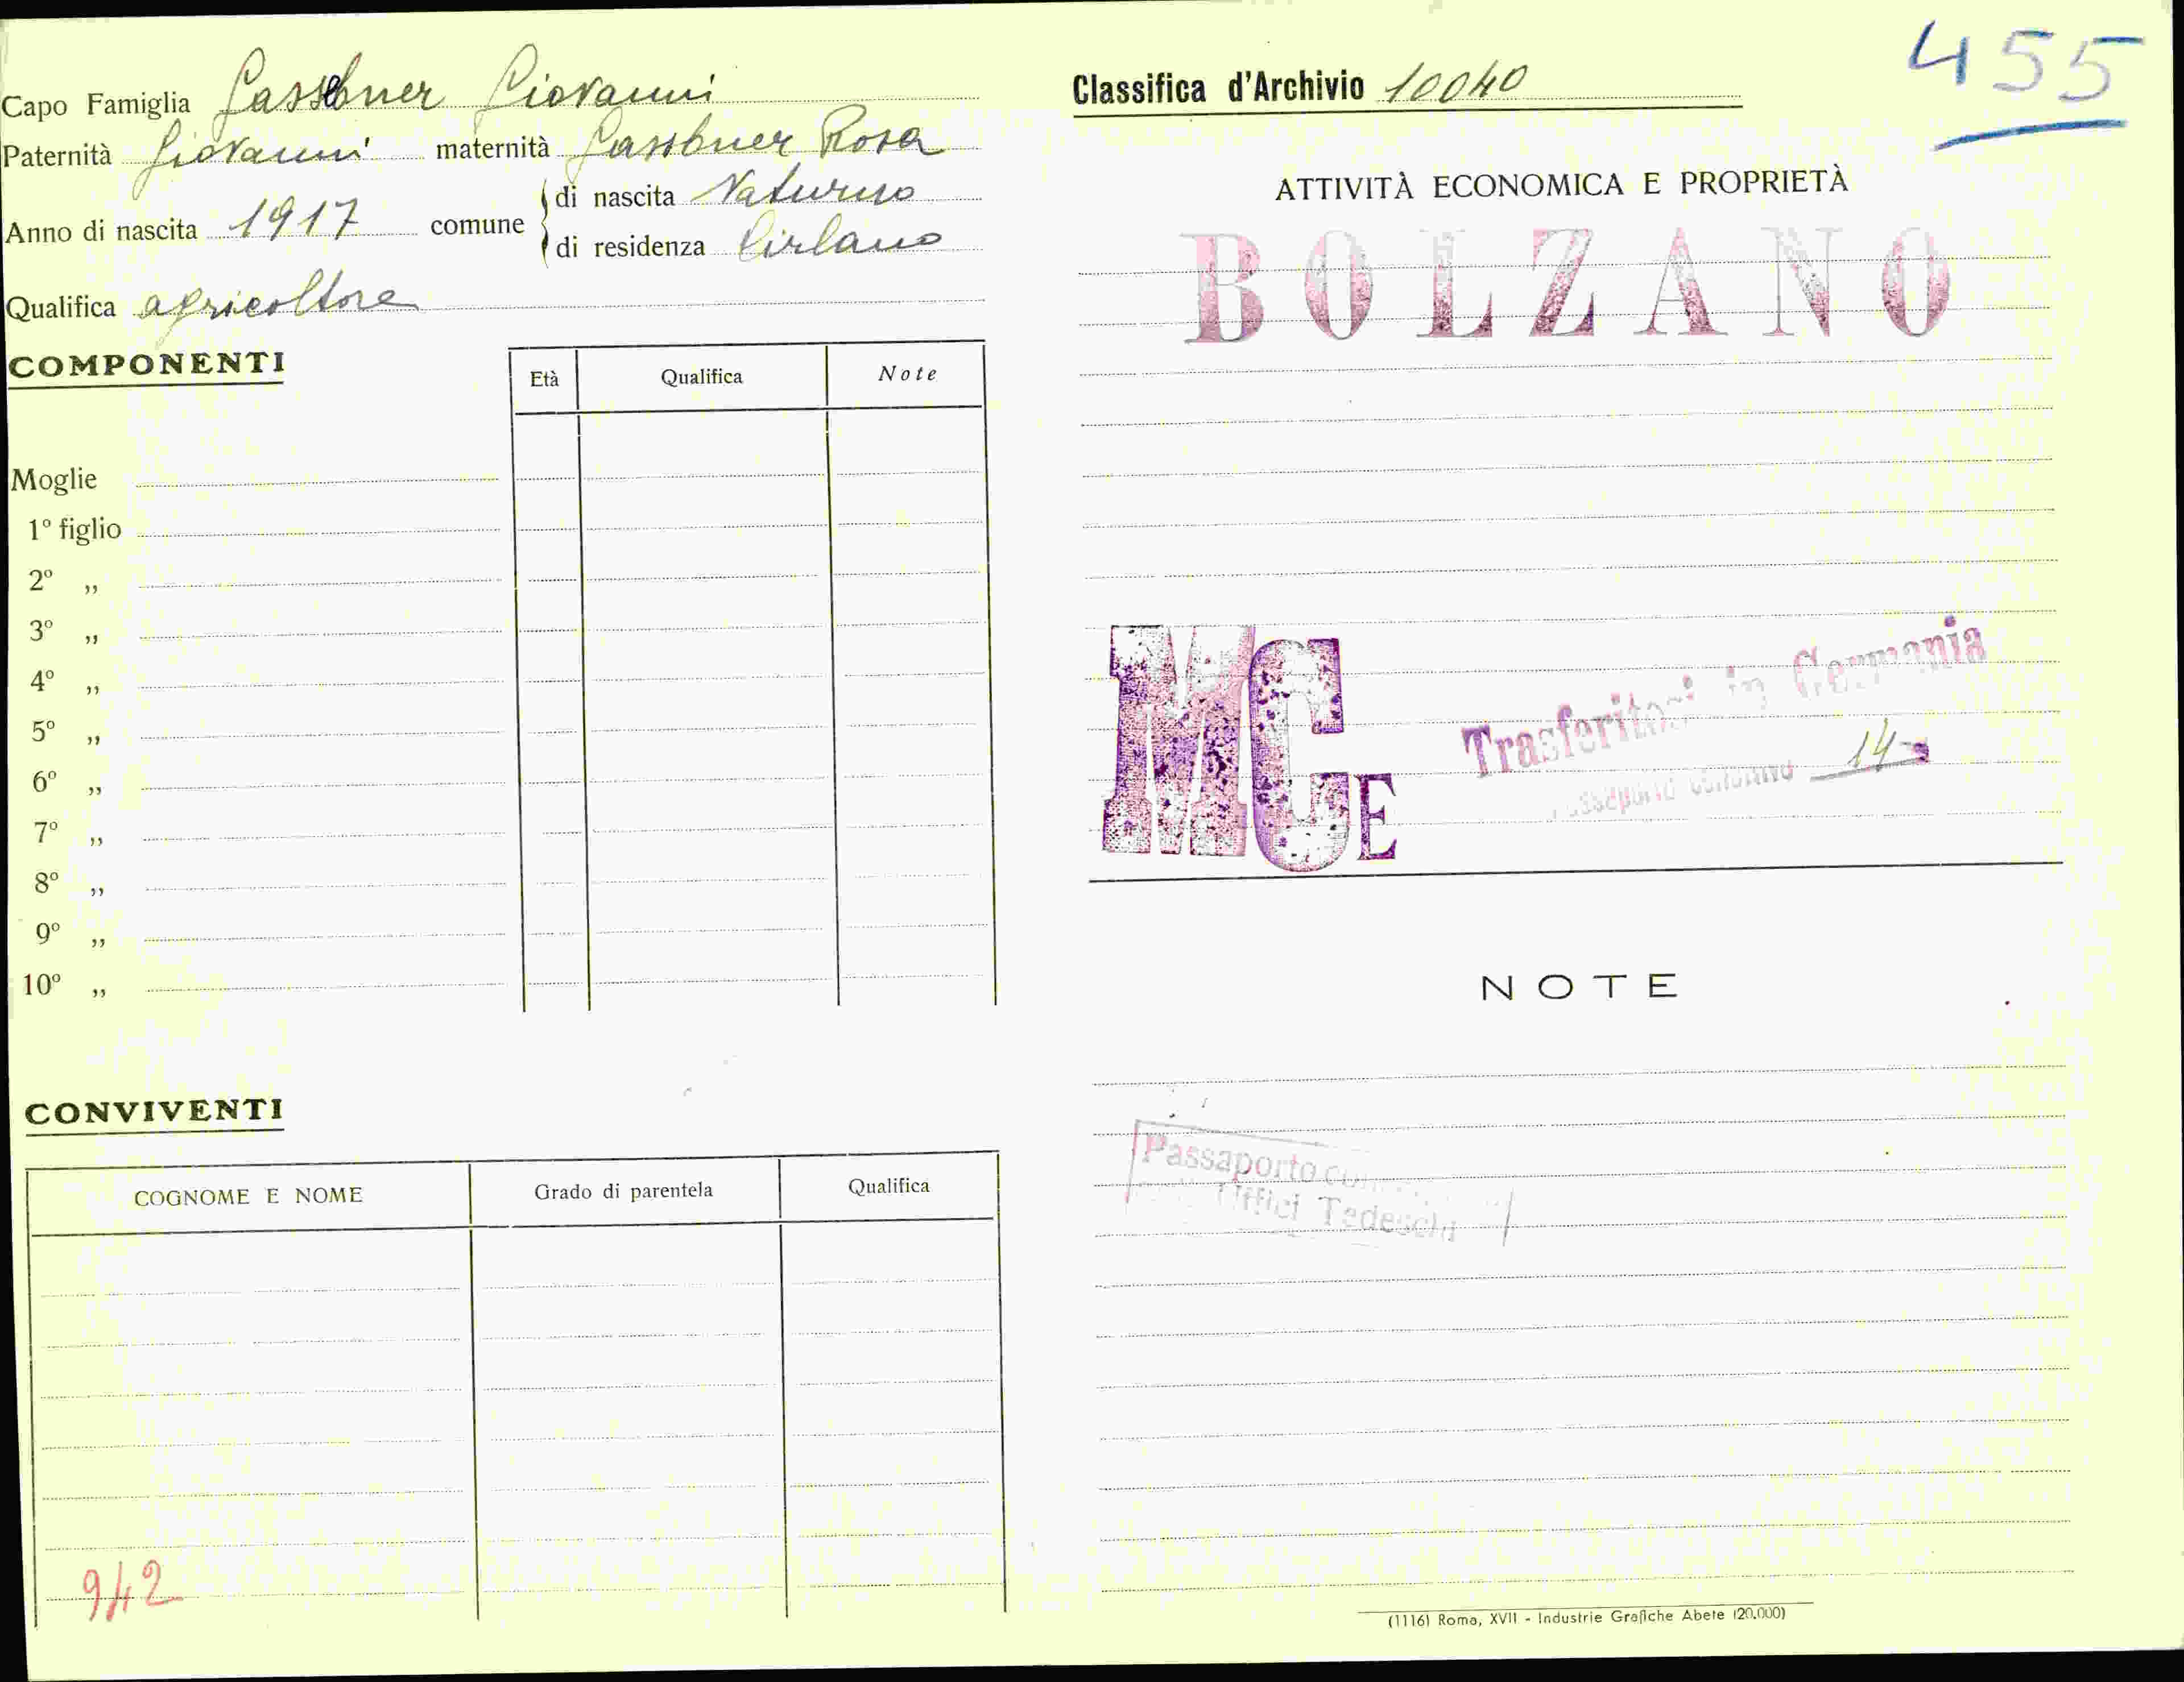 Capo Famiglia Gassebner Giovanni
Paternità Giovanni maternità Gassbner Rosa
Anno di nascita 1917 comune di nascita Naturno
di residenza Cirlano
Qualifica agricoltore
COMPONENTI
Età Qualifica Note
Moglie
1º figlio
2º „
3º „
4º „
5º „
6º „
7º „
8º „
9º „
10º „
CONVIVENTI
COGNOME E NOME Grado di parentela Qualifica
942
Classifica d'Archivio 10040
455
ATTIVITÀ ECONOMICA E PROPRIETÀ
BOLZANO
MCE
Trasferitosi in Germania
passaporto collettivo 14
NOTE
Passaporto
Uffici Tedeschi
(1116) Roma, XVII - Industrie Grafiche Abete (20.000)